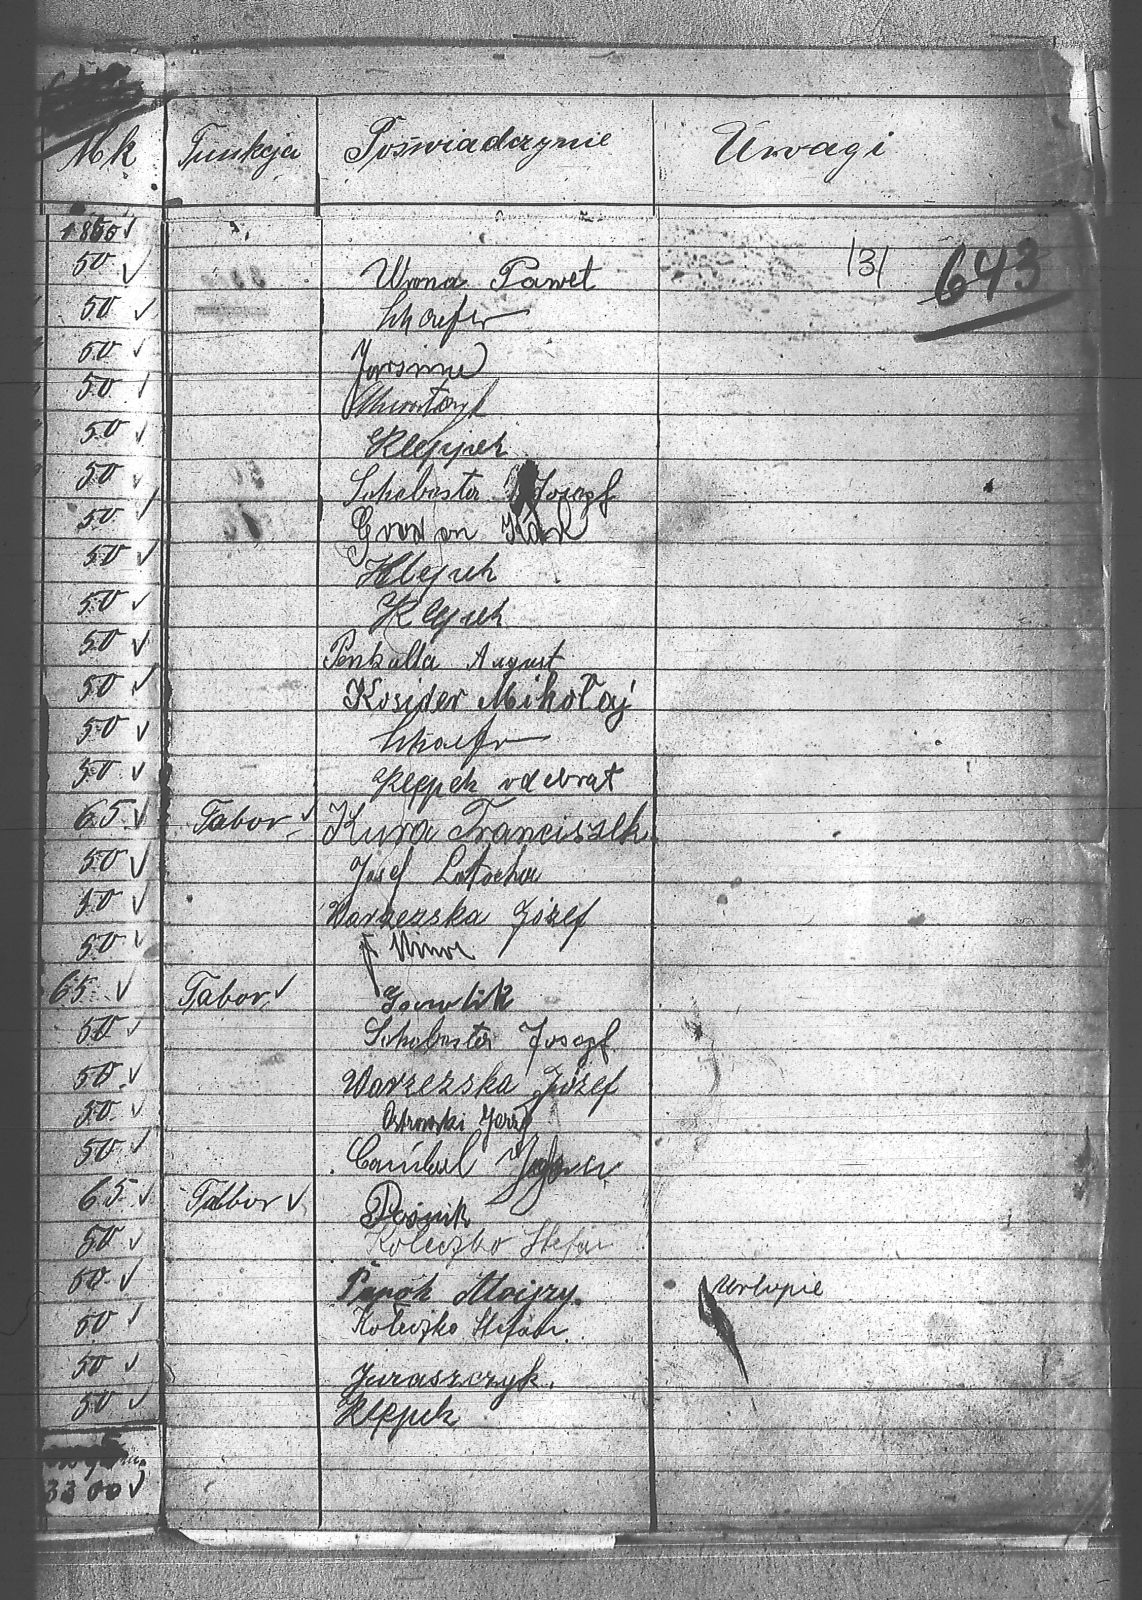 Mk Funkcja Poświadczynie Uwagi
1850
50 Wrona Paweł 131 643
50 Schaefer
50
50
50 Kleppek
50 Schabesta Josegf
50
50 Kleppek
50 Kleppek
50 Penkalla August
50 Kosider Mikołaj
50 Schaefer
50 Kleppek odebrat
65 Tabor Kura Franciszek.
50 Josef Latocha
50 Warzezska Józef
50
65 Tabor Gawlik
50 Schabesta Josegf
50 Warzezska Józef
50 Ostrowski Jerzy
50
65 Tabor Pośnik
50 Koleczko Stefan
50 Panok Aloizy. Urlopie
50 Koleczko Stefan.
50 Juraszczyk.
50 Kleppek
3300